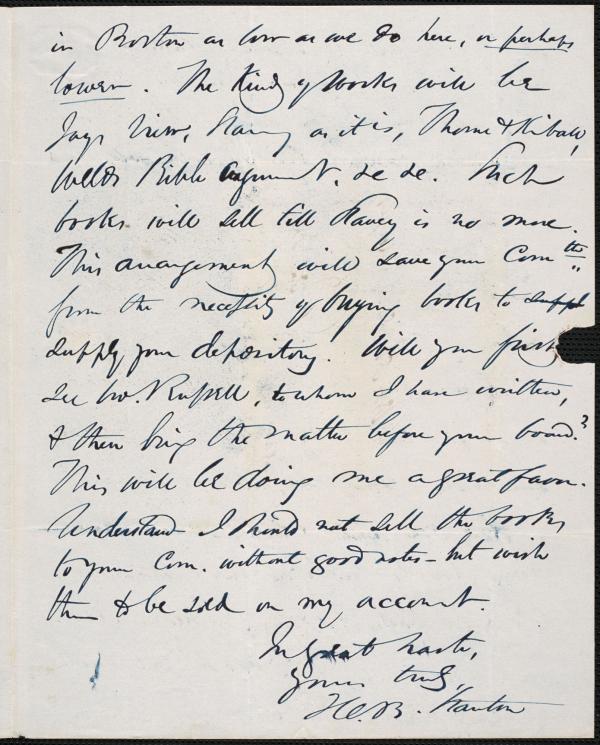 in Boston as low as we do here, or perhaps
lower. The kind of books will be
Jays View, Slavery as it is, Thome & Kimball,
Welds Bible Argument, &c &c. Such
books will sell till Slavery is no more.
This arrangement will save your Com tte
from the necessity of buying books to suppl
supply your depository. Will you first
see bro. Russell, to whom I have written,
& then bring the matter before your board?
This will be doing me a great favor.
Understand I should not sell the books
to your Com. without good notes - but wish
them to be sold on my account.
In great haste,
yours truly,
H. B. Stanton